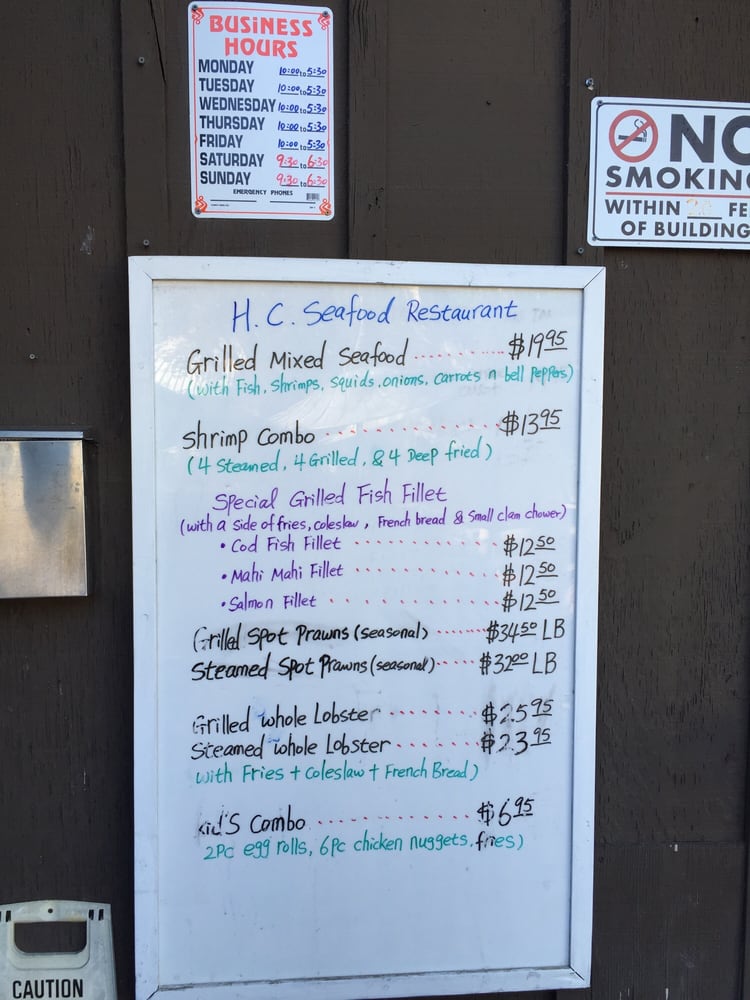 BUSINESS
HOURS
MONDAY 10:00 to 5:30
TUESDAY 10:00 to 5:30
WEDNESDAY 10:00 to 5:30
THURSDAY 10:00 to 5:30
FRIDAY 10:00 to 5:30
SATURDAY 9:30 to 6:30
SUNDAY 9:30 to 6:30
EMERGENCY PHONES
NO
SMOKING
WITHIN FE
OF BUILDING
H. C. Seafood Restaurant
Grilled Mixed Seafood .......... $19.95
(with Fish, Shrimps, Squids, onions, carrots n bell peppers)
Shrimp Combo .......... $13.95
(4 Steamed, 4 Grilled, & 4 Deep fried)
Special Grilled Fish Fillet
(with a side of fries, coleslaw, French bread & Small clam chower)
• Cod Fish Fillet .......... $12.50
• Mahi Mahi Fillet .......... $12.50
• Salmon Fillet .......... $12.50
Grilled Spot Prawns (seasonal) ....... $34.50 LB
Steamed Spot Prawns (seasonal) ..... $32.00 LB
Grilled whole Lobster ........ $25.95
Steamed whole Lobster ....... $23.95
with Fries + Coleslaw + French Bread)
Kid'S Combo .......... $6.95
2PC egg rolls, 6Pc chicken nuggets, fries)
CAUTION